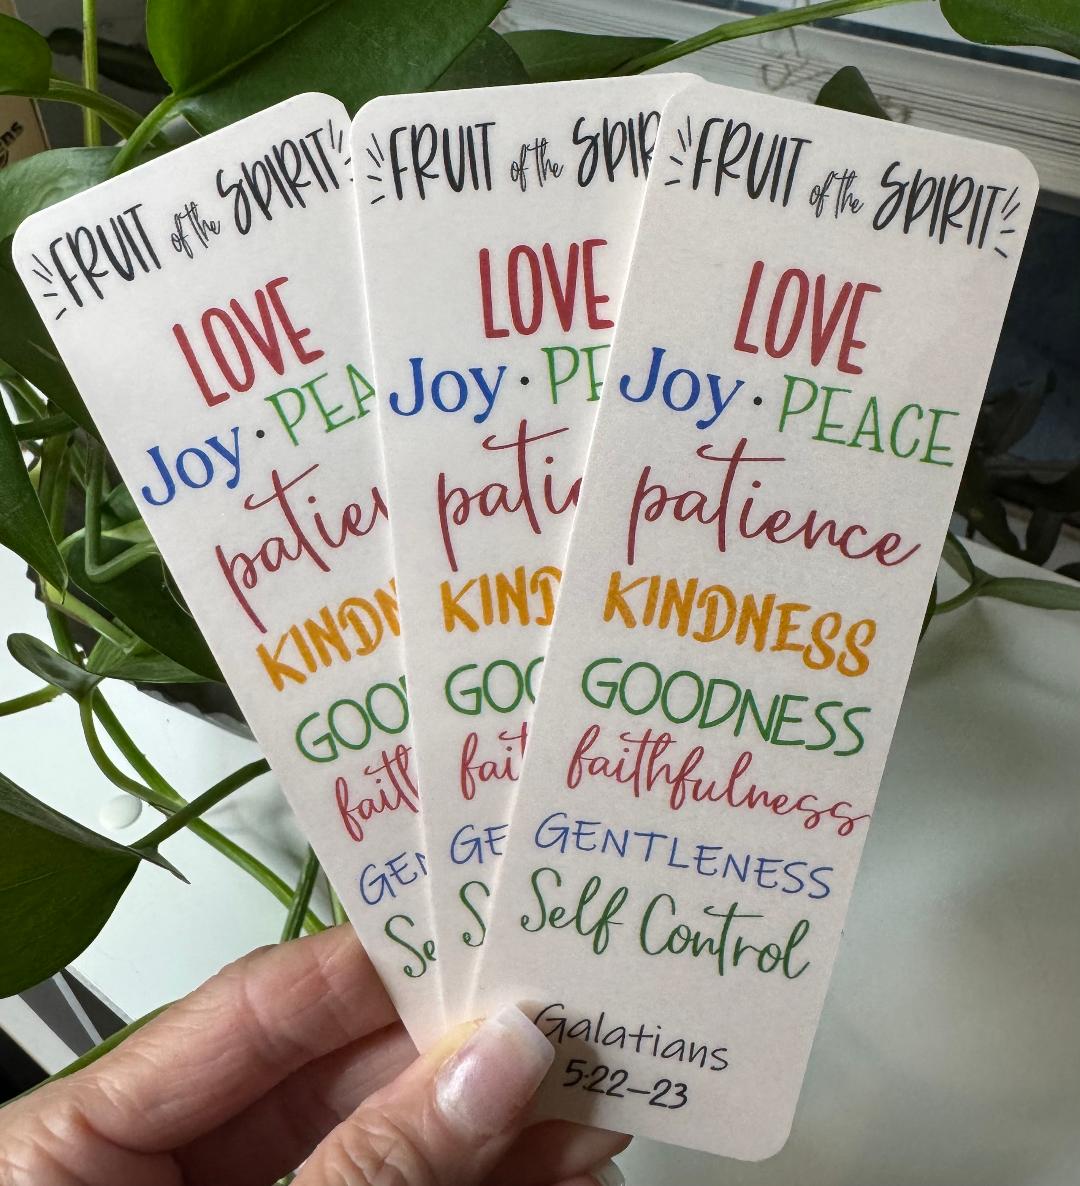 FRUIT of the SPIRIT
LOVE
Joy · PEA
patien
KINDN
GOOD
faith
GEN
Se
FRUIT of the SPIR
LOVE
Joy · PE
patie
KIND
GOO
fait
GE
S
FRUIT of the SPIRIT
LOVE
Joy · PEACE
patience
KINDNESS
GOODNESS
faithfulness
GENTLENESS
Self Control
Galatians
5:22-23
ens